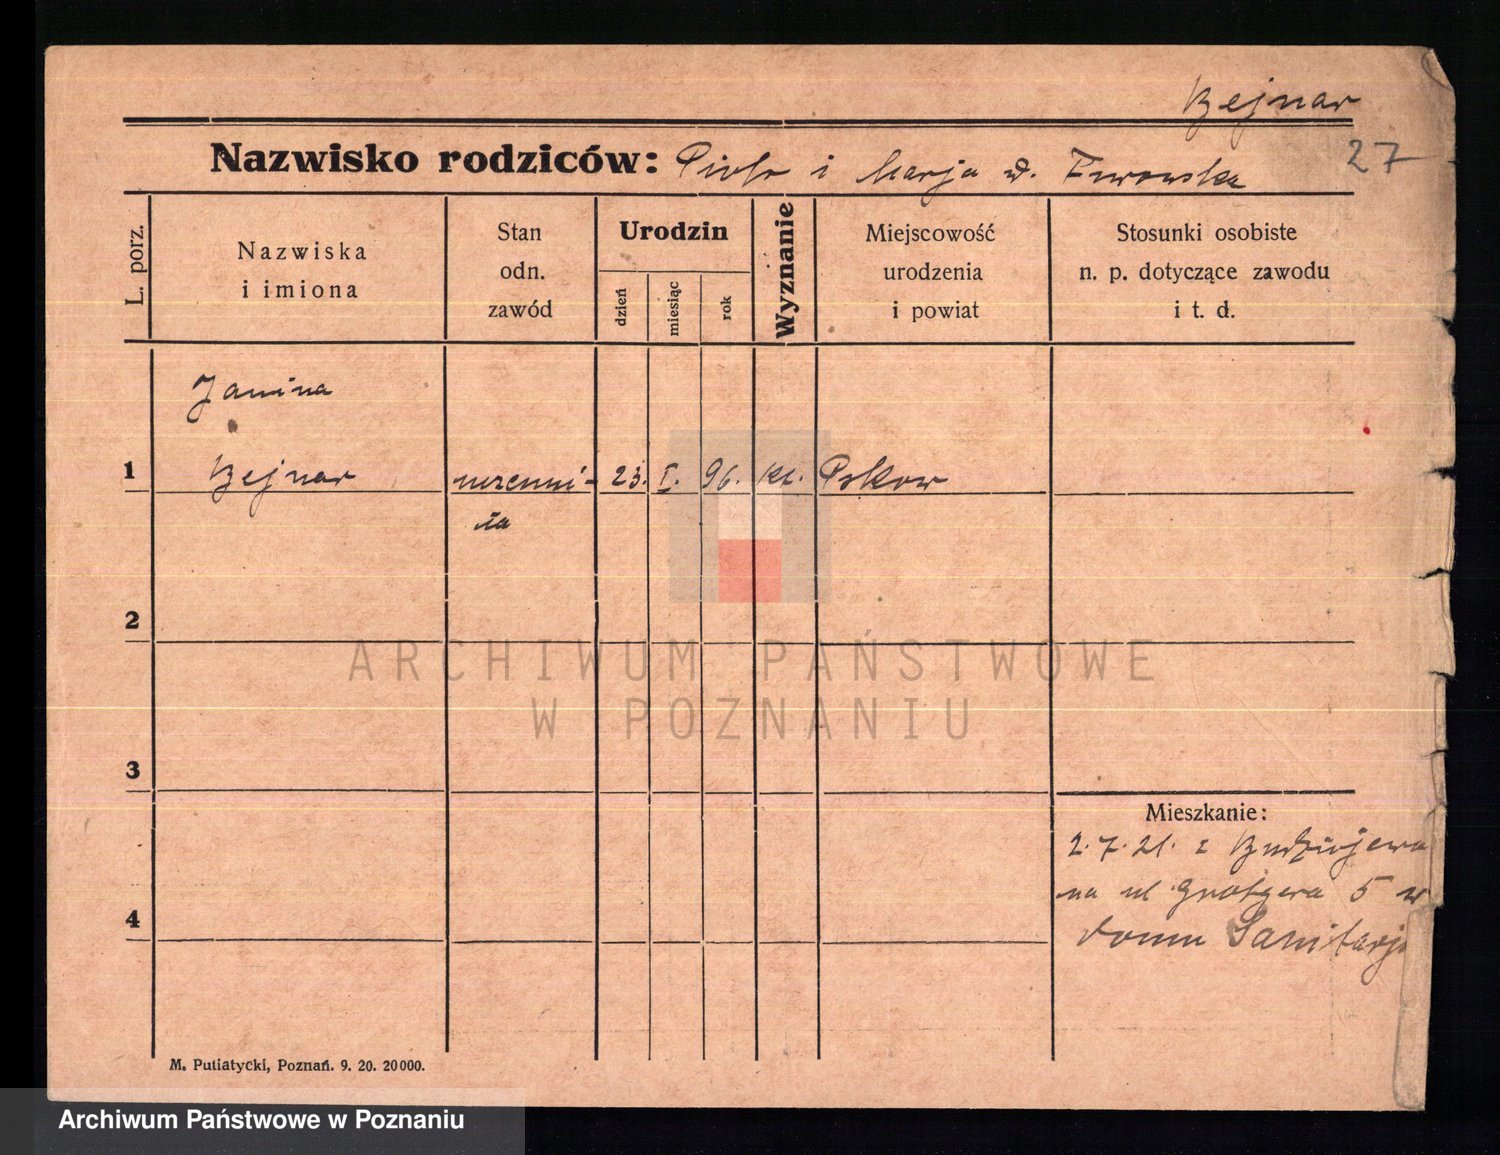 Bejnar
27
Nazwisko rodziców: Piotr i Marja d.
L. porz.
Nazwiska
i imiona
Stan
odn.
zawód
Urodzin
dzień
miesiąc
rok
Wyznanie
Miejscowość
urodzenia
i powiat
Stosunki osobiste
n. p. dotyczące zawodu
i t. d.
Janina
1 Bejnar 23. I. 96. kt. Pskow
2
3
4
Mieszkanie:
2.7.21. z
na ul Grotgera 5 w
domu Sanitarj
M. Putiatycki, Poznań. 9. 20. 20000.
ARCHIWUM PAŃSTWOWE
W POZNANIU
Archiwum Państwowe w Poznaniu